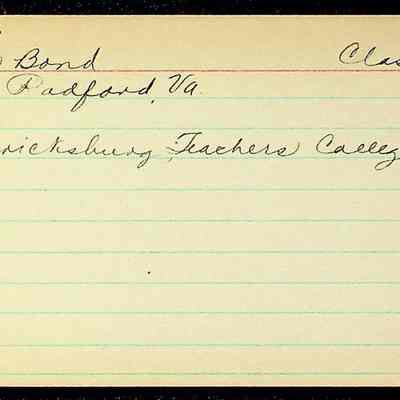 Bond Clas
Radford, Va.
ricksburg Teachers Colleg